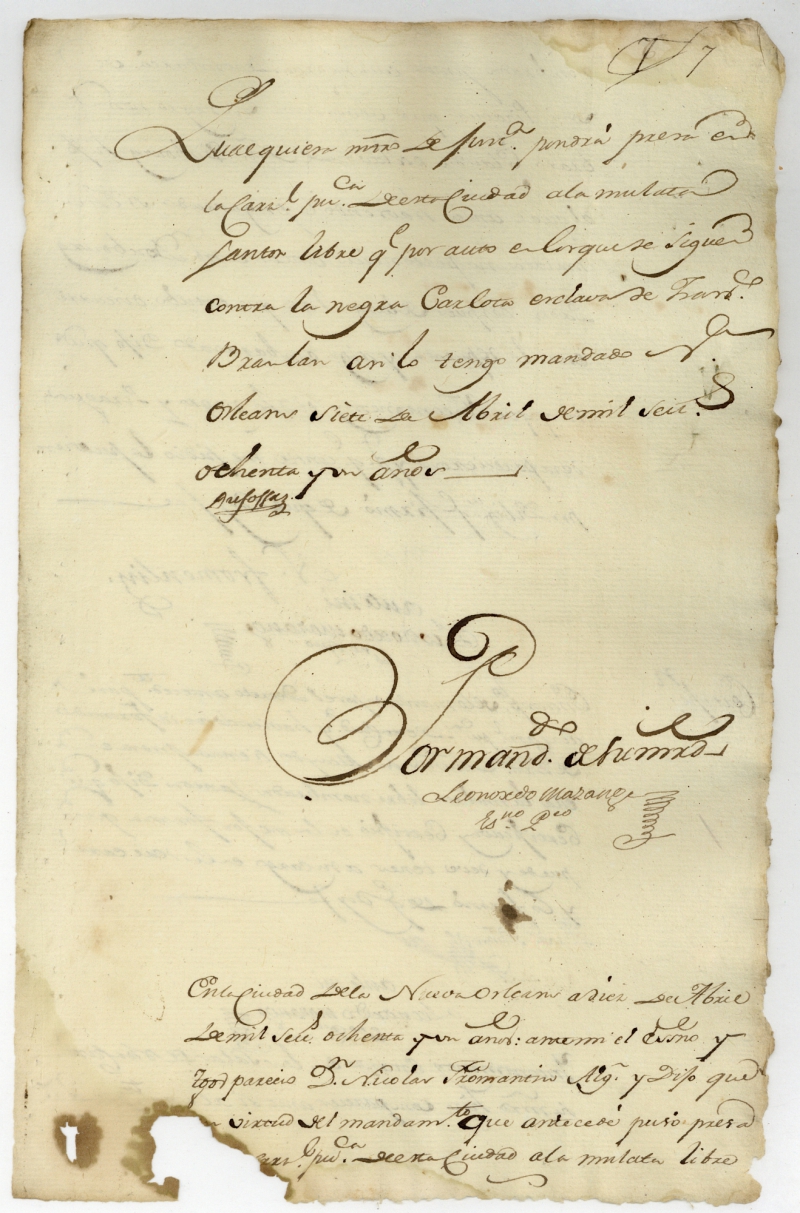 7
Qualequiera mtro de Justa. pondrá presa en
la Carzl. puca. de esta Ciudad ala mulata
Santos libre qe por auto en los que se siguen
contra la negra Carlota esclava de Franco.
Braulan asi lo tengo mandado Na.
Orleans siete de Abril de mil setcs.
ochenta y un años
Por mando. de su mrd
Leonardo Mazange
Esno Pco
En la Ciudad de la Nueva Orleans a diez de Abril
de mil setcs. ochenta y un años: ante mi el Esno y
tgos parecio Dn. Nicolas Fromentin Algl. y Dijo que
en virtud del mandamto. que antecede puso presa
carzl. puca. de esta Ciudad ala mulata libre